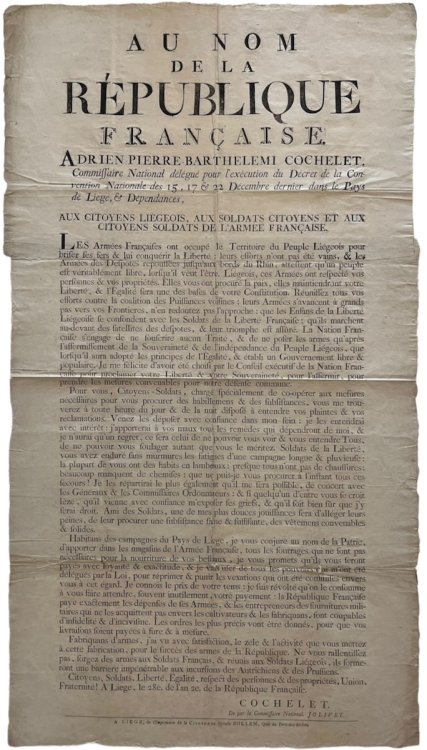 AU NOM
DE LA
RÉPUBLIQUE
FRANÇAISE.
ADRIEN-PIERRE-BARTHELEMI COCHELET,
Commiſſaire National délégué pour l'exécution du Décret de la Con-
vention Nationale des 15, 17 & 22 Decembre dernier dans le Pays
de Liege, & Dependances,
AUX CITOYENS LIEGEOIS, AUX SOLDATS CITOYENS ET AUX
CITOYENS SOLDATS DE L'ARMEE FRANÇAISE.
LES Armées Françaiſes ont occupé le Territoire du Peuple Liégeois pour
briſer ſes fers & lui conquérir la Liberté : leurs efforts n'ont pas été vains, & les
Armées des Deſpotes repouſſées juſqu'aux bords du Rhin, atteſtent qu'un peuple
eſt véritablement libre, lorſqu'il veut l'être. Liegeois, ces Armées ont reſpecté vos
perſonnes & vos propriétés. Elles vous ont procuré la paix, elles maintiendront votre
Liberté, & l'Egalité ſera une des baſes de votre Conſtitution. Réuniſſez tous vos
efforts contre la coalition des Puiſſances voiſines : leurs Armées s'avancent à grands
pas vers vos Frontieres, n'en redoutez pas l'approche : que les Enfans de la Liberté
Liégeoiſe ſe confondent avec les Soldats de la Liberté Françaiſe ; qu'ils marchent
au-devant des ſatellites des deſpotes, & leur triomphe eſt aſſuré. La Nation Fran-
caiſe s'engage de ne ſouſcrire aucun Traité, & de ne poſer les armes qu'après
l'affermiſſement de la Souveraineté & de l'indépendance du Peuple Liégeois, que
lorſqu'il aura adopté les principes de l'Egalité, & établi un Gouvernement libre &
populaire. Je me félicite d'avoir été choiſi par le Conſeil exécutif de la Nation Fran-
caiſe pour proclamer votre Liberté & votre Souveraineté, pour l'affermir, pour
prendre les meſures convenables pour notre défenſe commune.
Pour vous, Citoyens-Soldats, chargé ſpécialement de co-opérer aux meſures
néceſſaires pour vous procurer des habillemens & des ſubſiſtances, vous me trou-
verez à toute heure du jour & de la nuit diſpoſé à entendre vos plaintes & vos
réclamations. Venez les dépoſer avec confiance dans mon ſein : je les entendrai
avec intérêt : j'apporterai à vos maux tous les remedes qui dépendront de moi, &
je n'aurai qu'un regret, ce ſera celui de ne pouvoir vous voir & vous entendre Tous,
de ne pouvoir vous ſoulager autant que vous le méritez. Soldats de la Liberté,
vous avez enduré ſans murmures les fatigues d'une campagne longue & pluvieuſe :
la plupart de vous ont des habits en lambeaux : preſque tous n'ont pas de chauſſures :
beaucoup manquent de chemiſes : que ne puis-je vous procurer à l'inſtant tous ces
ſecours ! Je les répartirai le plus également qu'il me ſera poſſible, de concert avec
les Généraux & les Commiſſaires Ordonnateurs : & ſi quelqu'un d'entre vous ſe croit
lézé, qu'il vienne avec confiance m'expoſer ſes griefs, & qu'il ſoit bien ſûr que j'y
ferai droit. Ami des Soldats, une de mes plus douces jouiſſances ſera d'alléger leurs
peines, de leur procurer une ſubſiſtance ſaine & ſuffiſante, des vêtemens convenables
& ſolides.
Habitans des campagnes du Pays de Liege, je vous conjure au nom de la Patrie,
d'apporter dans les magaſins de l'Armée Françaiſe, tous les fourrages qui ne ſont pas
néceſſaires pour la nourriture de vos beſtiaux, je vous promets qu'ils vous ſeront
payés avec loyauté & exactitude, & je vais uſer de tous les pouvoirs qui m'ont été
délégués par la Loi, pour réprimer & punir les vexations qui ont été commiſes envers
vous à cet égard. Je connois le prix de votre tems : je ſuis révolté qu'on le conſomme
à vous faire attendre, ſouvent inutilement, votre payement : la République Françaiſe
paye exactement les dépenſes de ſes Armées, & les entrepreneurs des fournitures mili-
taires qui ne les acquittent pas envers les cultivateurs & les fabriquans, ſont coupables
d'infidélité & d'inciviſme. Les ordres les plus précis vont être donnés, pour que vos
livraiſons ſoient payées à fure & à meſure.
Fabriquans d'armes, j'ai vu avec ſatisfaction, le zèle & l'activité que vous mettez
à cette fabrication, pour le ſuccès des armes de la République. Ne vous rallentiſſez
pas, forgez des armes aux Soldats Français, & réunis aux Soldats Liégeois, ils forme-
ront une barriere impénétrable aux incurſions des Autrichiens & des Pruſſiens.
Citoyens, Soldats, Liberté, Egalité, reſpect des perſonnes & des propriétés, Union,
Fraternité ! A Liege, le 28e. de l'an 2e. de la République Françaiſe.
COCHELET.
De par le Commiſſaire National JOLIVET.
A LIEGE, de l'Imprimerie de la Citoyenne